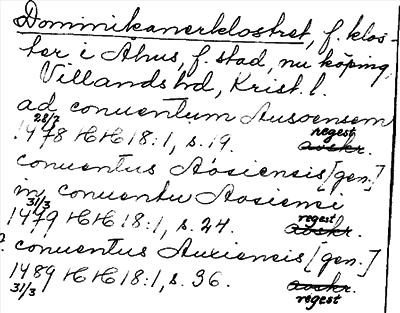 Dominikanerklostret, f. klos-
ter i Åhus, f. stad, nu köping,
Villands hd, Krist. l.
ad conuentum Ausoensem
28/7 regest
1478 HH 18:1, s. 19. avskr.
conuentus Aosiensis [gen.]
in conuentu Aosiensi
31/3 regest
1479 HH 18:1, s. 24. avskr.
conuentus Auxiensis [gen.]
1489 HH 18:1, s. 36. avskr.
31/3 regest